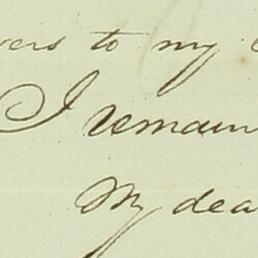 vers to my
I remain
My dea